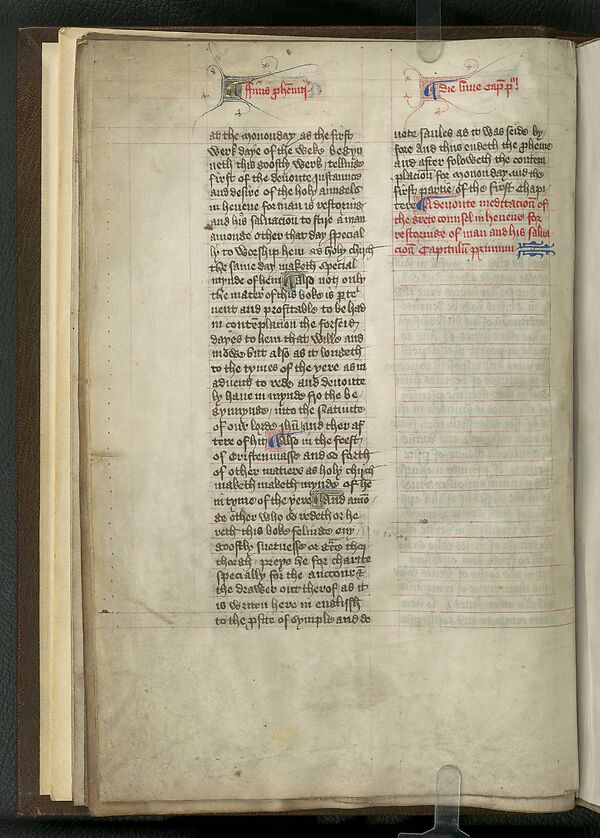 ffinis phemij
at the mononday as the first
werk daye of the weke begyn
neth this goostly werk tellinge
first of the deuoute instaunce
and desire of the holy aungels
in heuene for man is restoring
and his saluacioū to stire a man
amonge other that day special
ly to worship hem as holy chirch
the same day maketh special
mynde of hem Also not only
the mater of this boke is ꝑte
nent and profitable to be had
in contēplacion the forseid
dayes to hem that wille and
mowe but also as it longeth
to the tymes of the yere as in
aduent to rede and deuoute
ly haue in mynde fro the be
gynnynge in to the natiuite
of oure lorde jhū and ther af
tere of hit Also in the feest
of Cristenmasse and so forth
of other matiers as holy chirch
maketh maketh mynde of he
in tyme of the yere And amō
ge other who so redeth or he
reth this boke felinge eny
goostly suetnesse or grace ther
thorgh preye he for charite
specially for the auctour &
the drawer out therof as it
is writen here in english
to the ꝓfite of symple and de
Die lune Capm pm
uote saules as it was seide by
fore And thus endeth the pheme
and after foloweth the contem
placion for mononday and the
first partie of the first Chapi
tere A deuoute meditacion of
the grete counseil in heuene for
restoringe of man and his salua
cion Capitulū primum